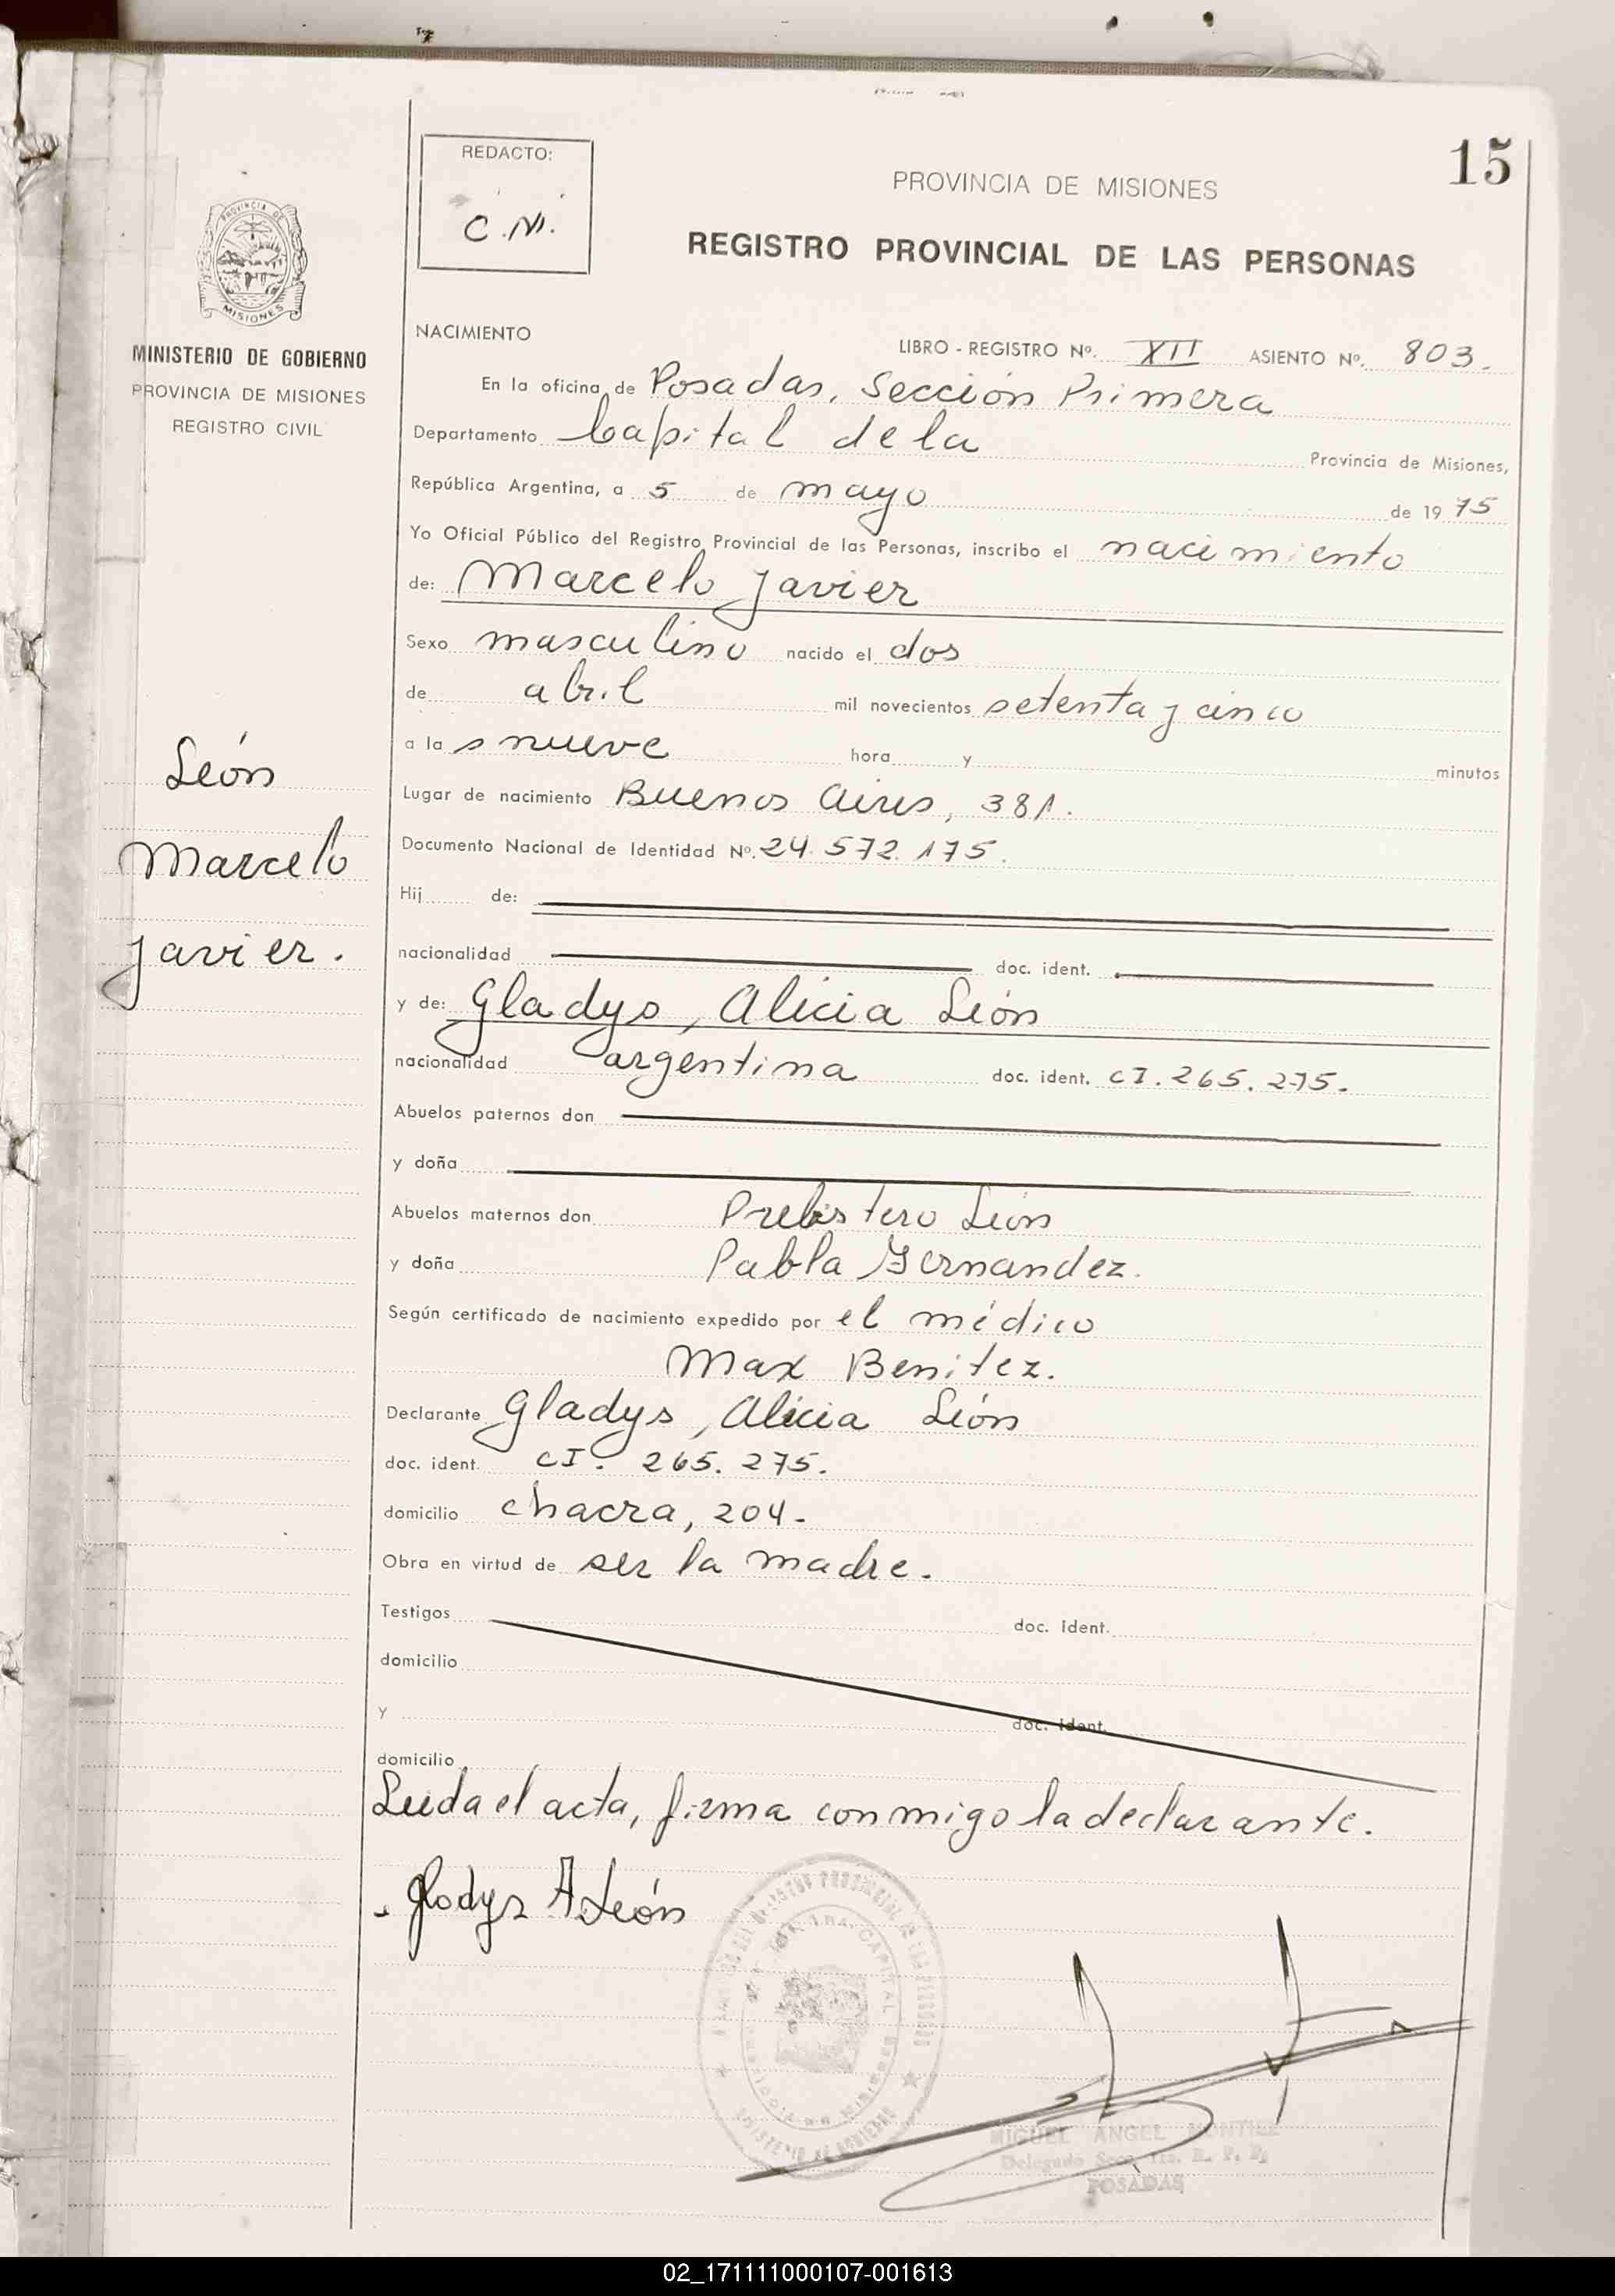 15
REDACTO:
C.M.
PROVINCIA DE MISIONES
REGISTRO PROVINCIAL DE LAS PERSONAS
PROVINCIA DE
MISIONES
MINISTERIO DE GOBIERNO
PROVINCIA DE MISIONES
REGISTRO CIVIL
León
Marcelo
Javier.
NACIMIENTO
LIBRO - REGISTRO Nº. XII ASIENTO Nº. 803.
En la oficina de Posadas, Sección Primera
Departamento Capital de la Provincia de Misiones,
República Argentina, a 5 de mayo de 1975
Yo Oficial Público del Registro Provincial de las Personas, inscribo el nacimiento
de: Marcelo Javier
Sexo masculino nacido el dos
de abril mil novecientos setenta y cinco
a la s nueve hora y minutos
Lugar de nacimiento Buenos Aires, 381.
Documento Nacional de Identidad Nº. 24.572.175.
Hij de:
nacionalidad doc. ident.
y de: Gladys, Alicia León
nacionalidad argentina doc. ident. CI. 265.275.
Abuelos paternos don
y doña
Abuelos maternos don Prebistero León
y doña Pabla Fernandez.
Según certificado de nacimiento expedido por el médico
Max Benitez.
Declarante Gladys, Alicia León
doc. ident. CI. 265.275.
domicilio chacra, 204.
Obra en virtud de ser la madre.
Testigos doc. ident.
domicilio
y doc. ident.
domicilio
Leida el acta, firma conmigo la declarante.
Gladys A León
MIGUEL ANGEL MONTIEL
Delegado Secc. 1ra. R. P. P.
POSADAS
02_171111000107-001613